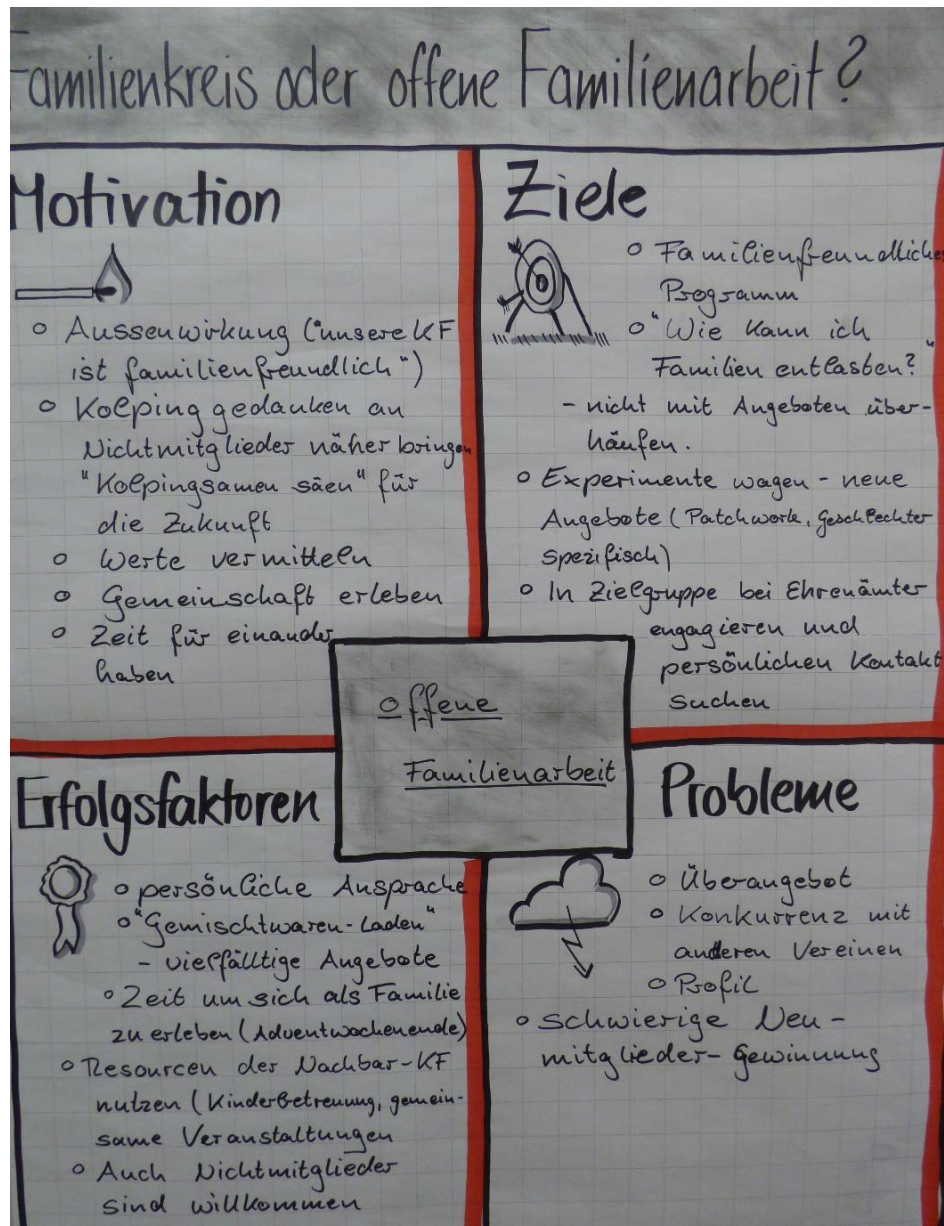 Familienkreis oder offene Familienarbeit?
Motivation
o Aussenwirkung ("unsere KF
ist familienfreundlich")
o Kolpinggedanken an
Nichtmitglieder näher bringen
"Kolpingsamen säen" für
die Zukunft
o Werte vermitteln
o Gemeinschaft erleben
o Zeit für einander
haben
Ziele
o Familienfreundliche
Programm
o "Wie kann ich
Familien entlasten?"
- nicht mit Angeboten über-
häufen.
o Experimente wagen - neue
Angebote (Patchwork, Geschlechter
spezifisch)
o In Zielgruppe bei Ehrenämter
engagieren und
persönlichen Kontakt
suchen
Offene
Familienarbeit
Erfolgsfaktoren
o persönliche Ansprache
o "Gemischtwaren-Laden"
- vielfälltige Angebote
o Zeit um sich als Familie
zu erleben (Adventwochenende)
o Resourcen der Nachbar-KF
nutzen (Kinderbetreuung, gemein-
same Veranstaltungen
o Auch Nichtmitglieder
sind willkommen
Probleme
o Überangebot
o Konkurrenz mit
anderen Vereinen
o Profil
o schwierige Neu-
mitglieder-Gewinnung